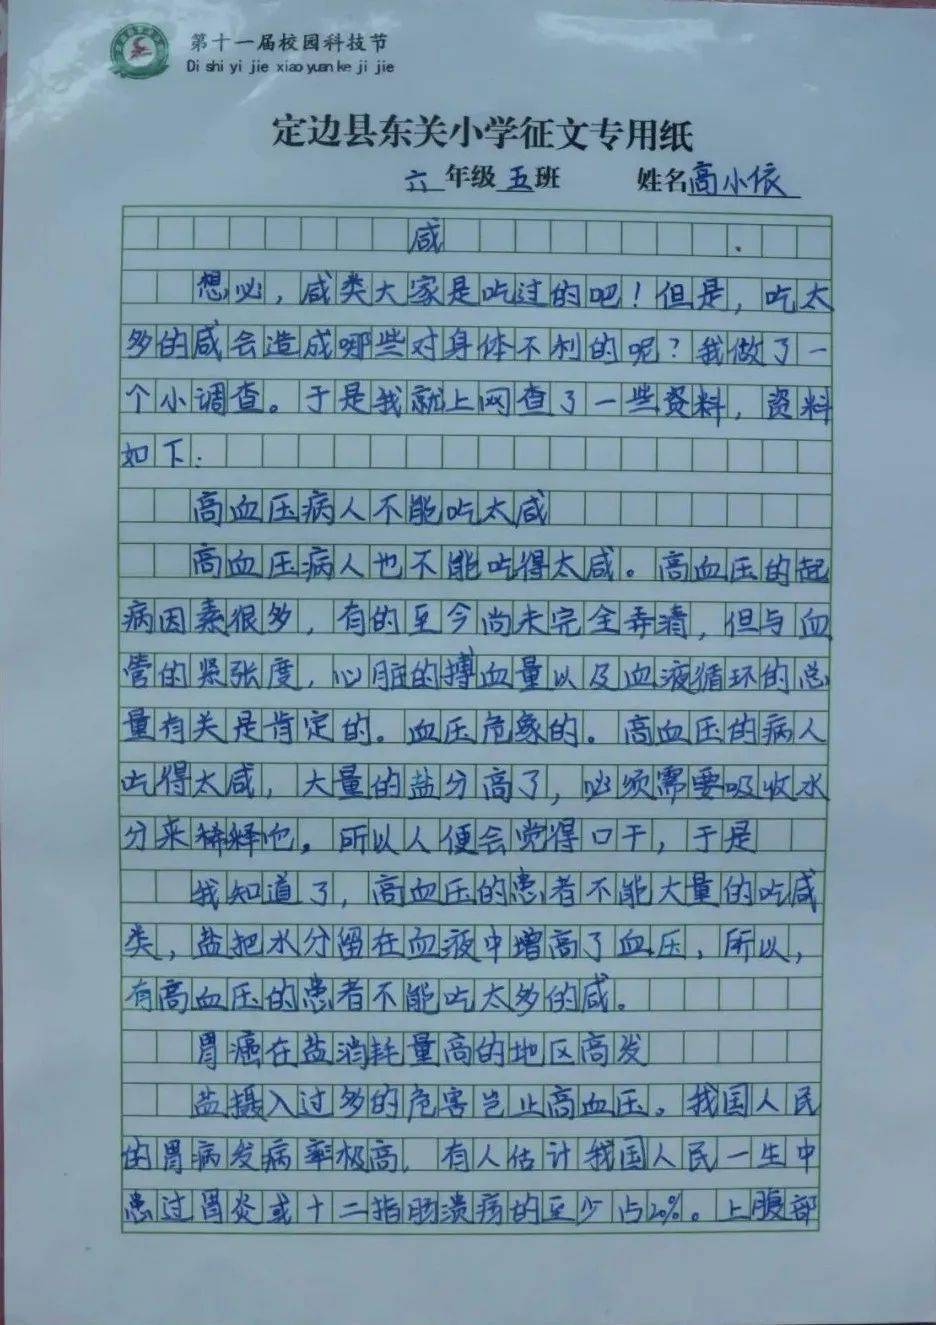 第十一届校园科技节
Di shi yi jie xiao yuan ke ji jie
定边县东关小学征文专用纸
六年级五班 姓名高小依
咸
想必，咸类大家是吃过的吧！但是，吃太
多的咸会造成哪些对身体不利的呢？我做了一
个小调查。于是我就上网查了一些资料，资料
如下：
高血压病人不能吃太咸
高血压病人也不能吃得太咸。高血压的起
病因素很多，有的至今尚未完全弄清，但与血
管的紧张度，心脏的搏血量以及血液循环的总
量有关是肯定的。血压危象的。高血压的病人
吃得太咸，大量的盐分高了，必须需要吸收水
分来稀释他。所以人便会觉得口干，于是
我知道了，高血压的患者不能大量的吃咸
类，盐把水分留在血液中增高了血压，所以，
有高血压的患者不能吃太多的咸。
胃癌在盐消耗量高的地区高发
盐摄入过多的危害岂止高血压。我国人民
的胃病发病率极高，有人估计我国人民一生中
患过胃炎或十二指肠溃疡的至少占20%。上腹部